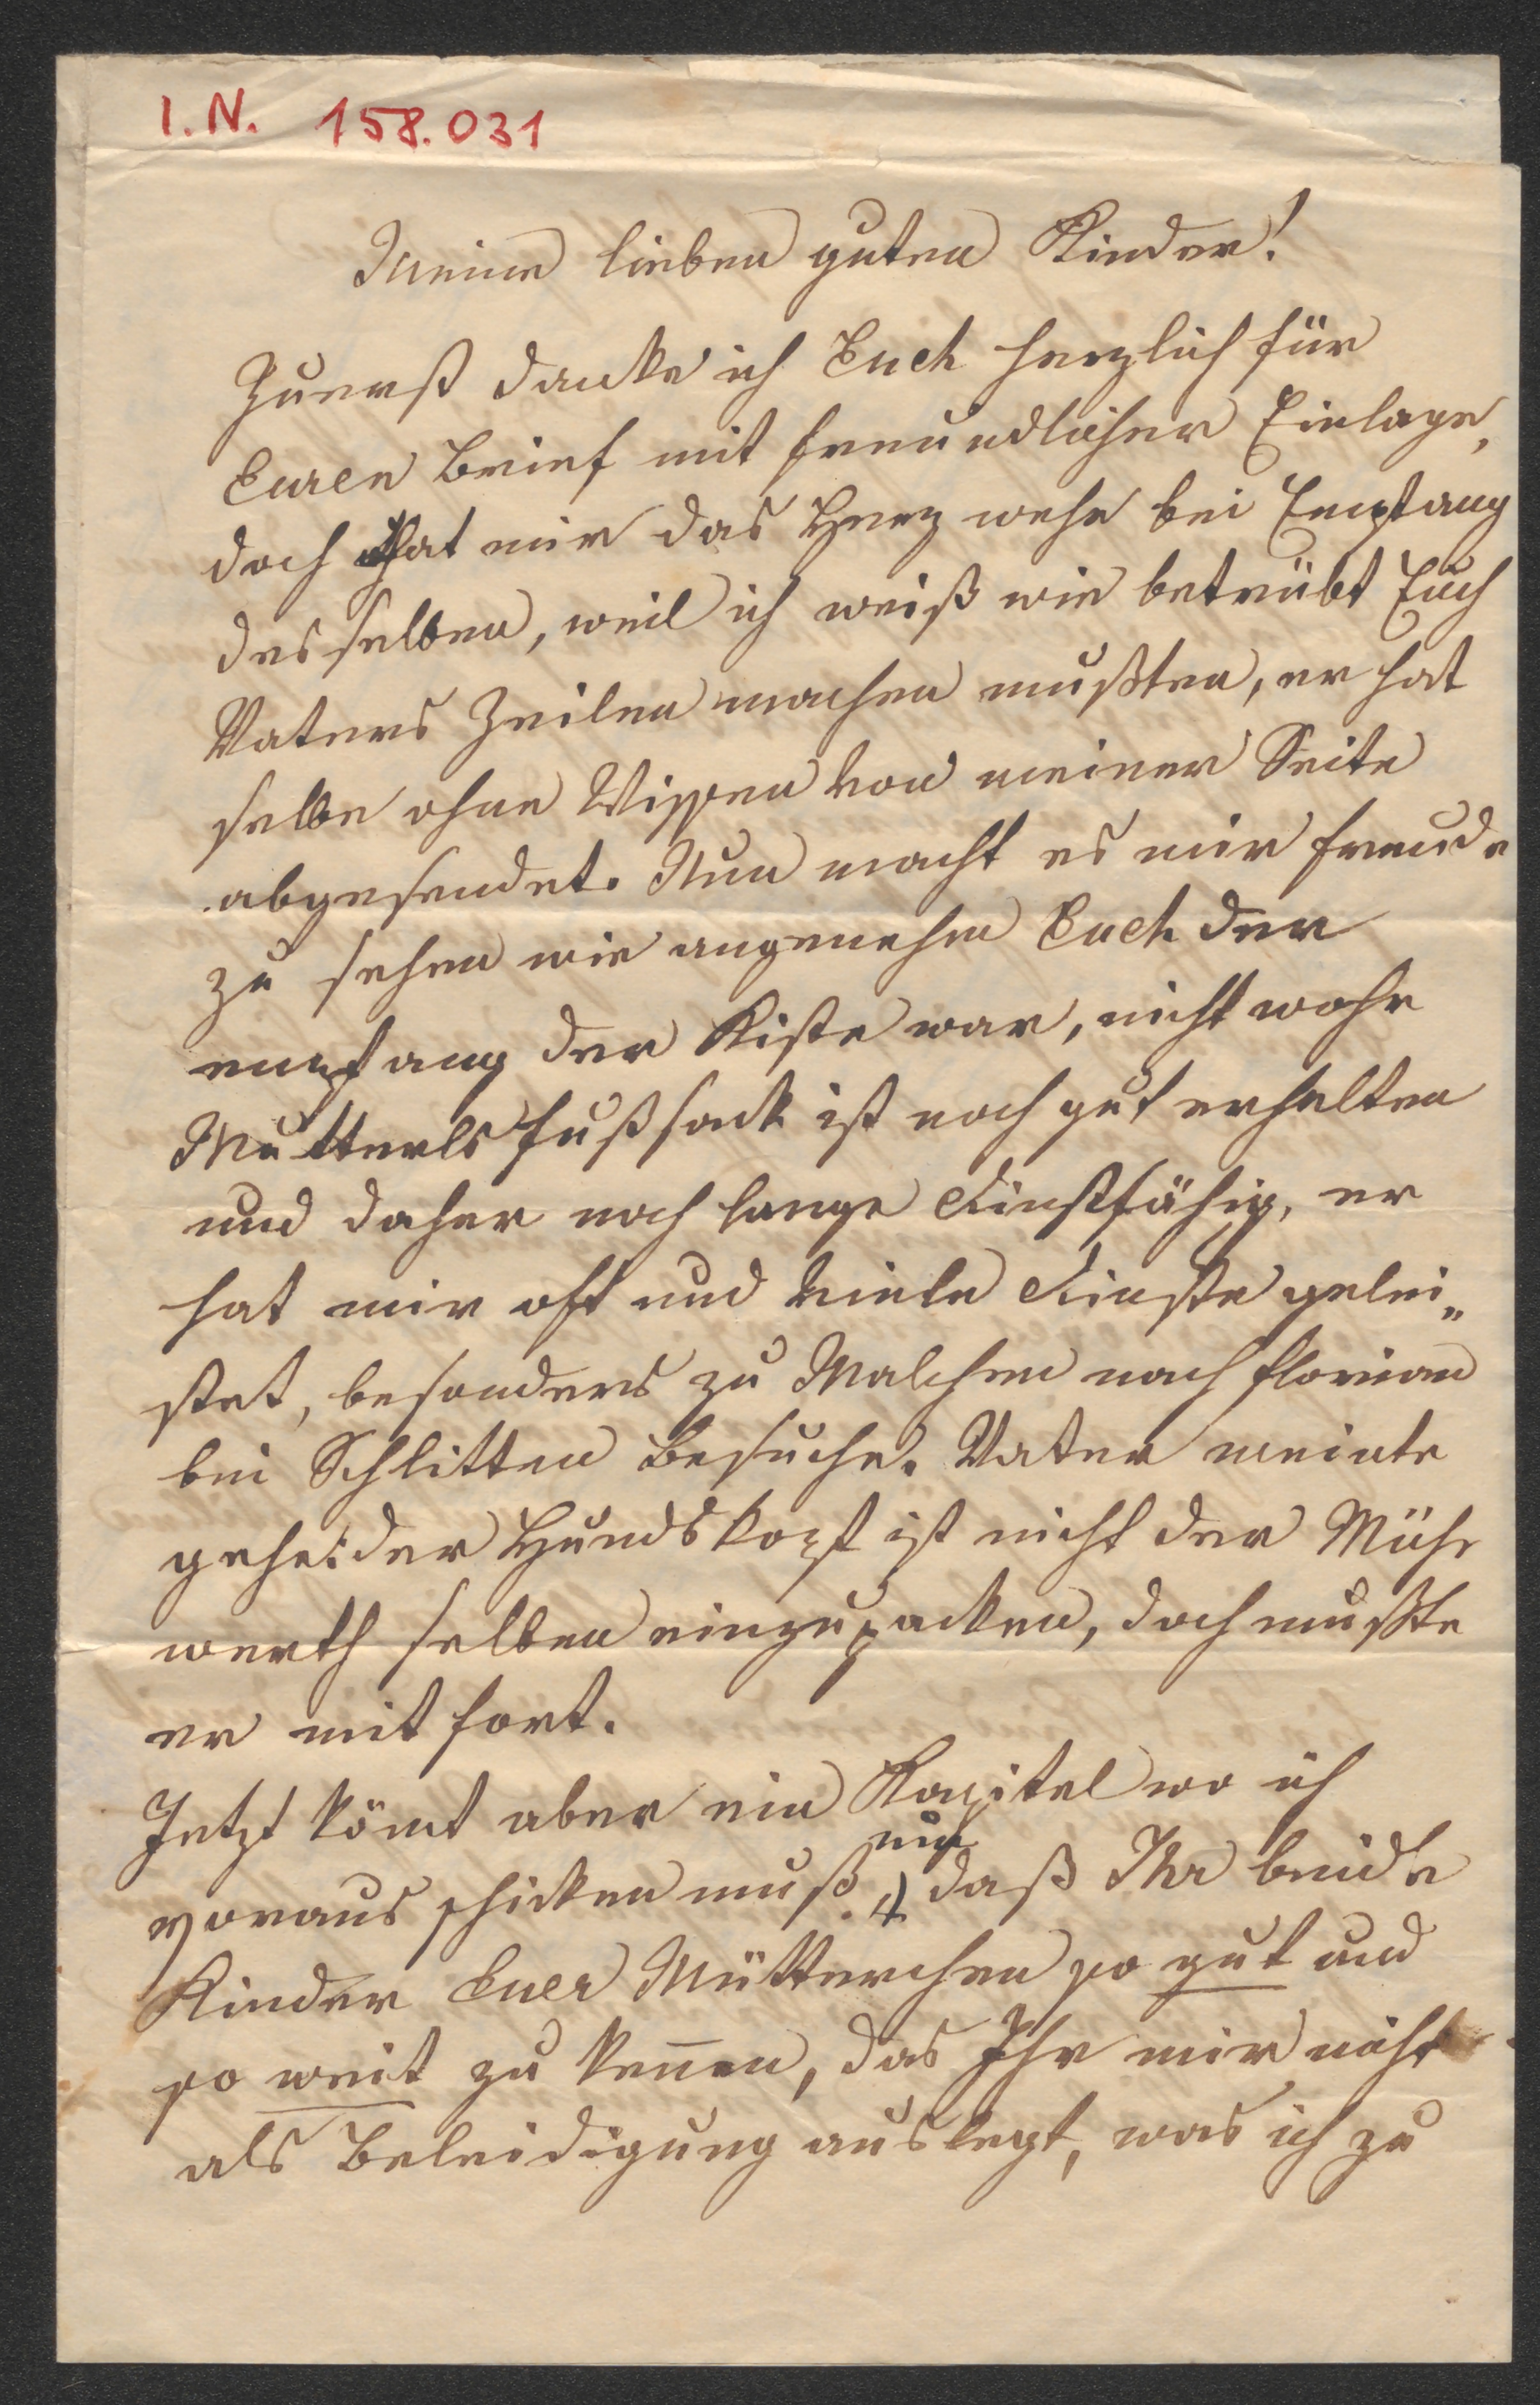 I.N. 158.031
Meine lieben guten Kinder!
Zuerst danke ich Euch herzlich für
Euren Brief mit freundlicher Einlage,
doch that mir das Herz wehe bei Empfang
desselben, weil ich weiß wie betrübt Euch
Vaters Zeilen machen mußten, er hat
selbe ohne Wissen von meiner Seite
abgesendet. Nun macht es mir Freude
zu sehen wie angenehm Euch der
empfang der Kiste war, nicht wahr
Mutterls Fußsack ist noch gut erhalten
und daher noch lange dinstfähig, er
hat mir oft und viele Dinste gelei„
stet, besonders zu Malchen nach Florian
bei Schlitten Besuche. Vater meinte
gehe: der Hundskopf ist nicht der Mühe
werth selben einzupacken, doch mußte
er mit fort.
Jetzt kömt aber ein Kapitel wo ich
voraus schicken muß, daß Ihr beide
Kinder Euer Mütterchen so gut und
so weit zu kennen, das Ihr mir nicht
als Beleidigung auslegt, was ich zu